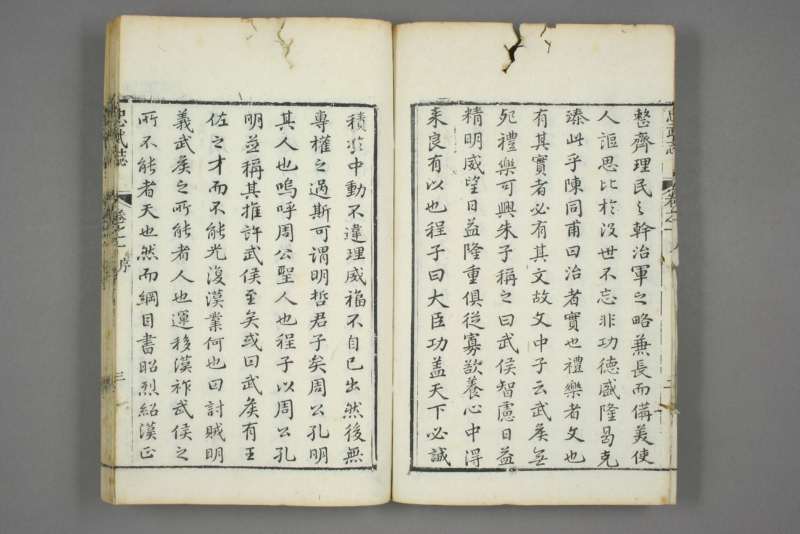 整齊理民之幹治軍之略兼長而備美使
人謳思比於沒世不忘非功德盛隆曷克
臻此乎陳同甫曰治者實也禮樂者文也
有其實者必有其文故文中子云武侯無
死禮樂可興朱子稱之曰武侯智慮日益
精明威望日益隆重俱從寡欲養心中得
來良有以也程子曰大臣功盖天下必誠
積於中動不違理威福不自己出然後無
專權之過斯可謂明哲君子矣周公孔明
其人也嗚呼周公聖人也程子以周公孔
明並稱其推許武侯至矣或曰武侯有王
佐之才而不能光復漢業何也曰討賊明
義武侯之所能者人也運移漢祚武侯之
所不能者天也然而綱目書昭烈紹漢正
忠武誌
卷之一 序
三